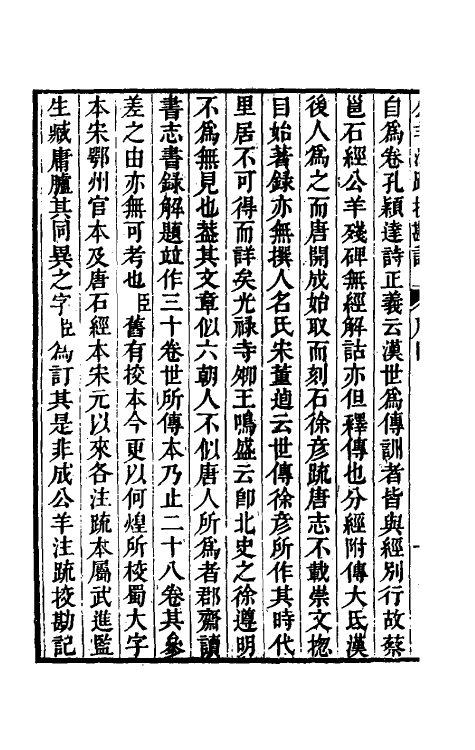 自爲卷孔穎達詩正義云漢世爲傳訓者皆與經別行故蔡
邕石經公羊殘碑無經解詁亦但釋傳也分經附傳大氐漢
後人爲之而唐開成始取而刻石徐彦疏唐志不載崇文揔
目始著錄亦無撰人名氏宋董逌云世傳徐彦所作其時代
里居不可得而詳矣光祿寺卿王鳴盛云卽北史之徐遵明
不爲無見也葢其文章似六朝人不似唐人所爲者郡齋讀
書志書錄解題竝作三十卷世所傳本乃止二十八卷其參
差之由亦無可考也臣舊有挍本今更以何煌所挍蜀大字
本宋鄂州官本及唐石經本宋元以來各注疏本屬武進監
生臧庸臚其同異之字臣爲訂其是非成公羊注疏挍勘記